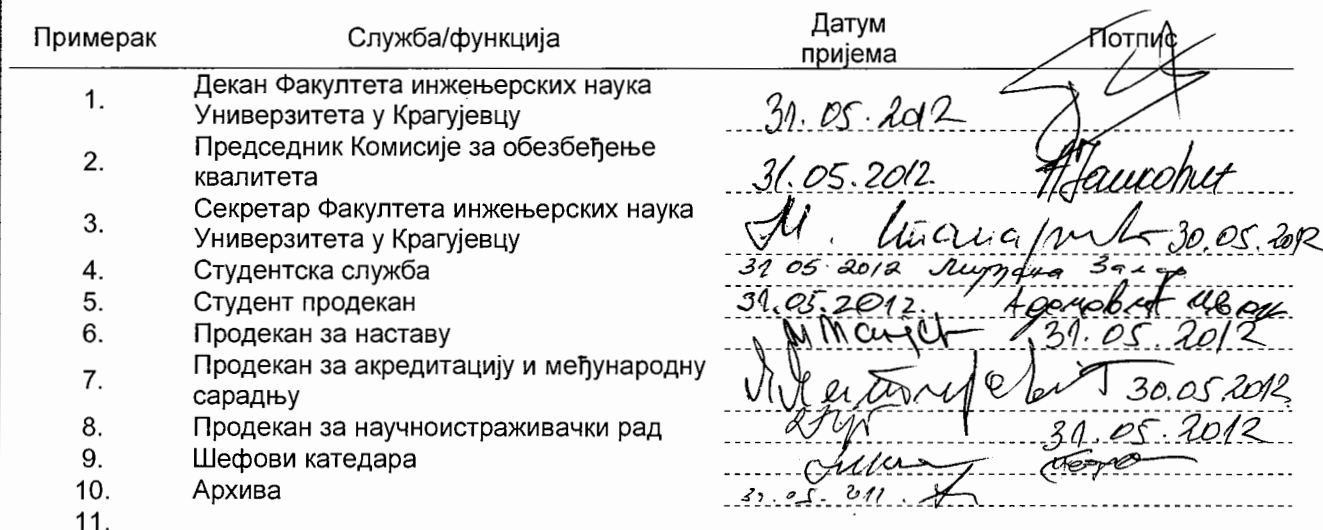 Примерак Служба/функција Датум пријема Потпис
1. Декан Факултета инжењерских наука
Универзитета у Крагујевцу 31.05.2012
2. Председник Комисије за обезбеђење
квалитета 31.05.2012.
3. Секретар Факултета инжењерских наука
Универзитета у Крагујевцу 30.05.2012
4. Студентска служба 31 05 2012
5. Студент продекан 31.05.2012.
6. Продекан за наставу 31.05.2012
7. Продекан за акредитацију и међународну
сарадњу 30.05.2012.
8. Продекан за научноистраживачки рад 31.05.2012
9. Шефови катедара
10. Архива
11.